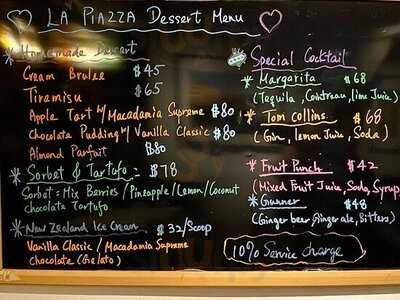 LA PIAZZA Dessert Menu
Homemade Dessert
Cream Brulee $45
Tiramisu $65
Apple Tart w/ Macadamia Supreme $80
Chocolate Pudding w/ Vanilla Classic $80
Almond Parfait $80
Sorbet & Tartufo - $78
Sorbet: Mix Berries / Pineapple / Lemon / Coconut
chocolate Tortufo
New Zealand Ice Cream $32/Scoop
Vanilla Classic / Macadamia Supreme
Chocolate (Gelato)
Special Cocktail
Margarita $68
(Tequila, Cointreau, lime Juice)
Tom Collins $68
(Gin, lemon Juice, Soda)
Fruit Punch $42
(Mixed Fruit Juice, Soda, Syrup
Gunner $48
(Ginger beer, Ginger ale, Bitters)
10% Service charge